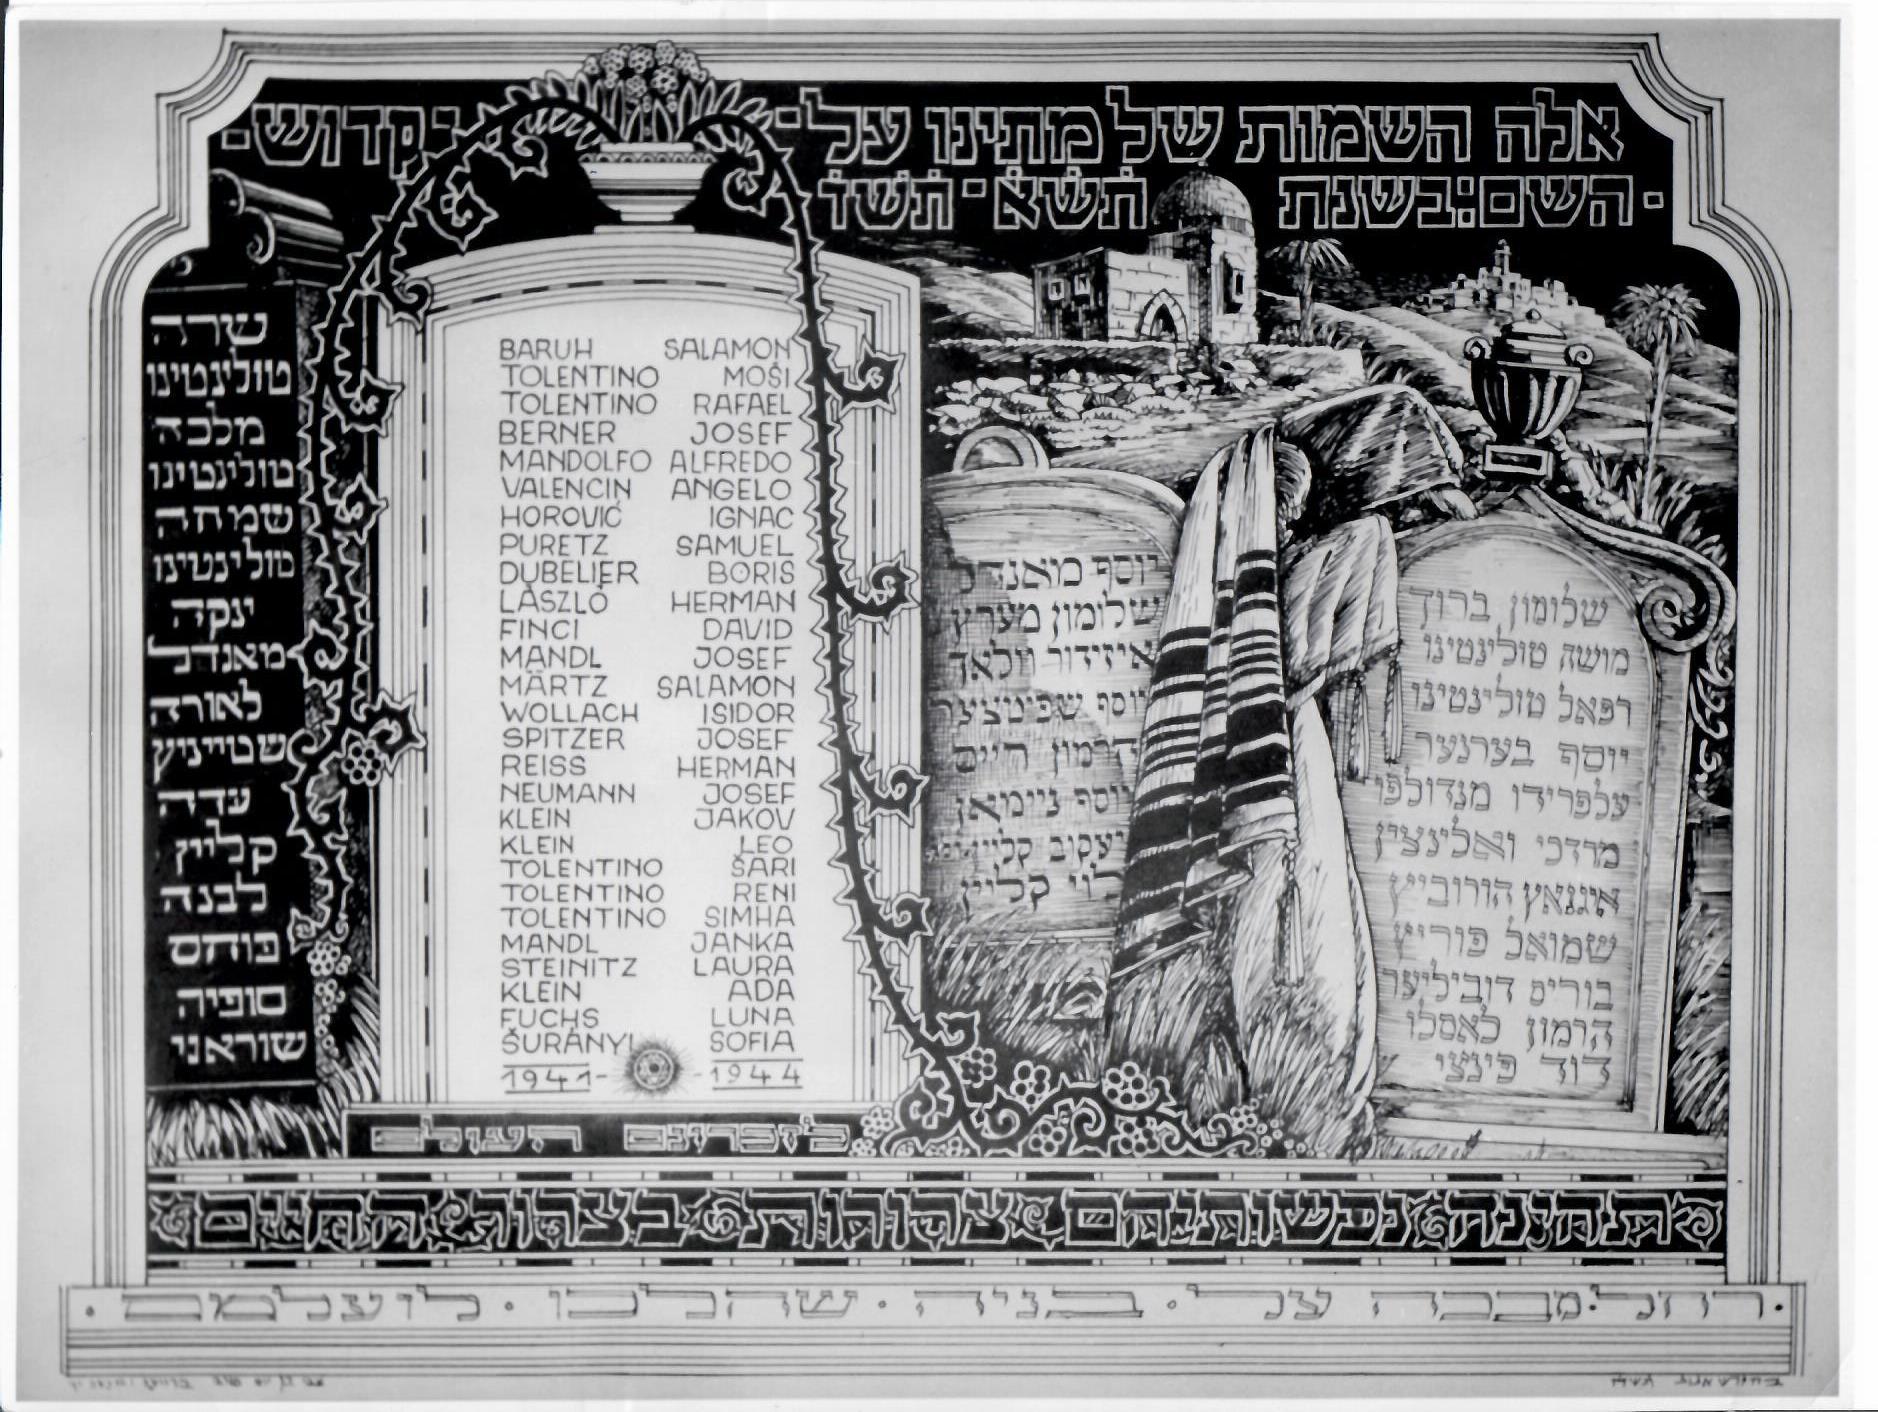 אלה השמות של מתינו על־ ־קדוש
־השם: בשנת תשא־תשד
שרה
טולינטינו
מלכה
טולינטינו
שמחה
טולינטינו
ינקה
מאנדל
לאורה
שטייניץ
עדה
קליין
לבנה
פוחס
סופיה
שוראני
BARUH SALAMON
TOLENTINO MOŠI
TOLENTINO RAFAEL
BERNER JOSEF
MANDOLFO ALFREDO
VALENCIN ANGELO
HOROVIĆ IGNAC
PURETZ SAMUEL
DUBELIER BORIS
LÁSZLÓ HERMAN
FINCI DAVID
MANDL JOSEF
MÄRTZ SALAMON
WOLLACH ISIDOR
SPITZER JOSEF
REISS HERMAN
NEUMANN JOSEF
KLEIN JAKOV
KLEIN LEO
TOLENTINO ŠARI
TOLENTINO RENI
TOLENTINO SIMHA
MANDL JANKA
STEINITZ LAURA
KLEIN ADA
FUCHS LUNA
ŠURÁNYI SOFIA
1941- -1944
לזכרונם העולם
יוסף מאנדל
שלומון מערץ
איזידור וולאך
יוסף שפיטצער
הרמון היים
יוסף ניימאן
יעקוב קליין
לוי קליין
שלומון ברוך
מושה טולינטינו
רפאל טולינטינו
יוסף בערנער
עלפרידו מנדולפו
מרדכי ואלינצין
איגנאץ הורוביץ
שמואל פוריץ
בוריס דוביליער
הרמון לאסלו
דוד פינצי
תהינה נפשותיהם צרורות בצרור החיים
רחל · מבכה על · בניה · שהלכו · לועלמם